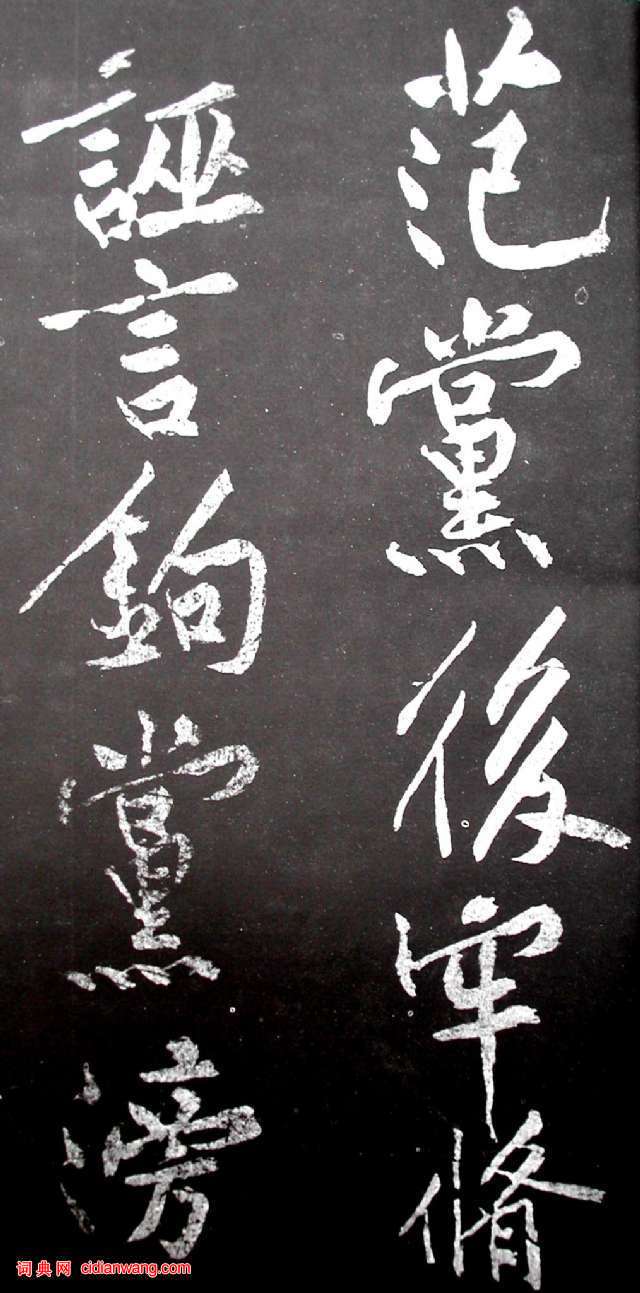 范黨後牢脩
誣言鉤黨滂
词典网 cidianwang.com